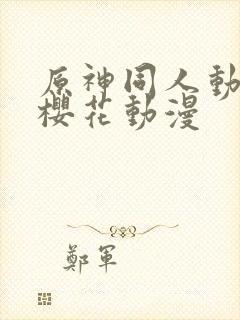 原神同人動
櫻花動漫
鄭軍